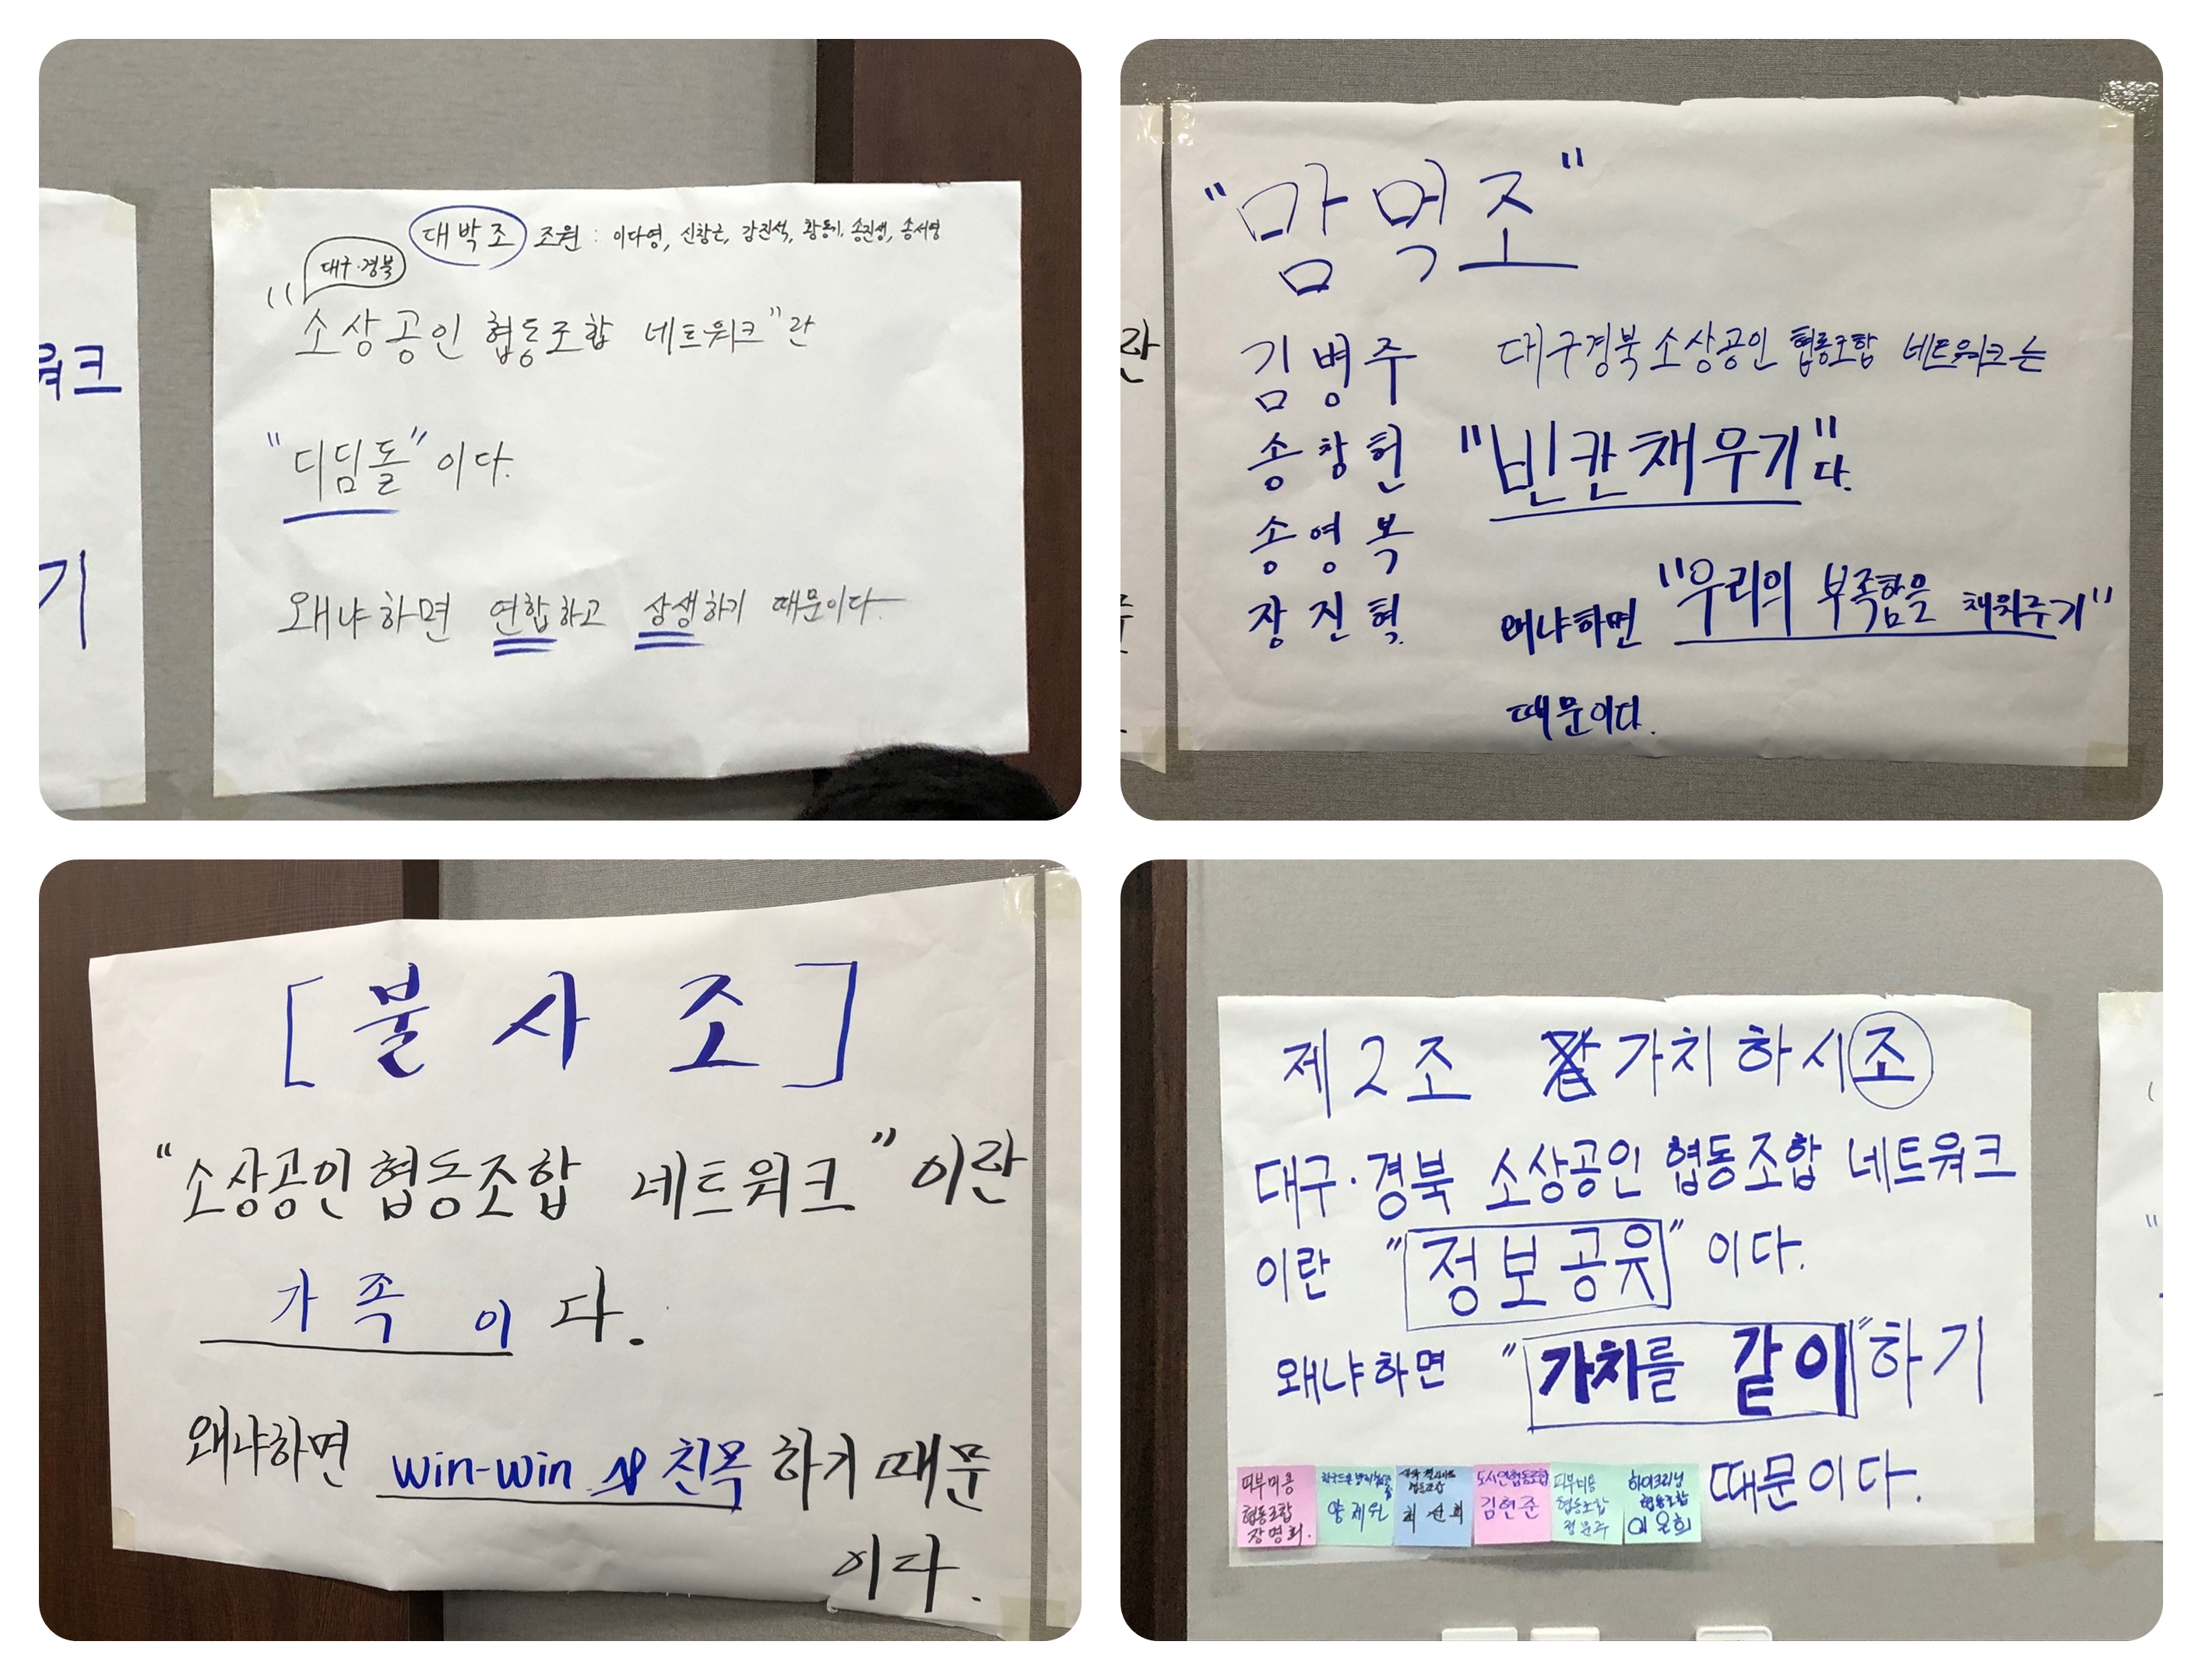 대박조 조원 : 이다영, 신창근, 감진석, 황동기, 송진생, 송서영
대구·경북
"소상공인 협동조합 네트워크"란
"디딤돌"이다.
왜냐하면 연합하고 상생하기 때문이다
워크
기
"맘먹조"
김병주
송창헌
송영복
장진혁
대구경북 소상공인 협동조합 네트워크는
"빈칸채우기"다.
왜냐하면 "우리의 부족함을 채워주기"
때문이다.
란
[불사조]
"소상공인 협동조합 네트워크"이란
가족이다.
왜냐하면 win-win & 친목 하기 때문
이다.
제2조 가치하시조
대구·경북 소상공인 협동조합 네트워크
이란 "정보공유"이다.
왜냐하면 "가치를 같이"하기
때문이다.
피부미용
협동조합
장명희.
양제원
협동조합
최선희
도시연협동조합
김현준
피부미용
협동조합
정문주
하이크리닝
협동조합
이윤희